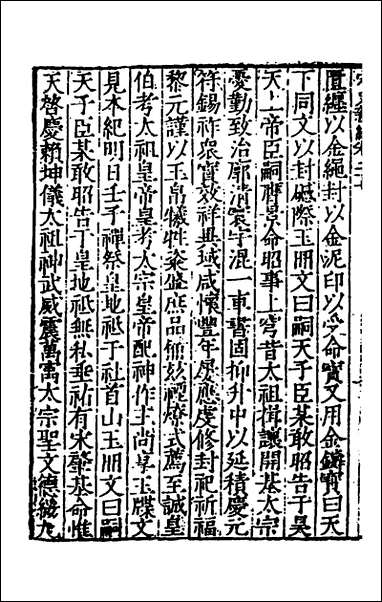 匱經以金繩封以金泥印以受命寶又用金鑄寶曰天
下同文以封䃭際玉冊文曰嗣天子臣某敢昭告于昊
天上帝臣嗣膺景命昭事上穹昔太祖揖讓開基太宗
憂勤致治廓清寰宇混一車書固抑升中以延積慶元
符錫祚衆寶效祥異域咸懷豐年屢應虔修封祀祈福
黎元謹以玉帛犧牲粢盛庶品備玆禋燎式薦至誠皇
伯考太祖皇帝皇考太宗皇帝配神作主尚享玉牒文
見本紀明日壬子禪祭皇地祗于社首山玉冊文曰嗣
天子臣某敢昭告于皇地祗無私垂祐有宋肇基命惟
天啓慶賴坤儀太祖神武威震萬寓太宗聖文德綏九